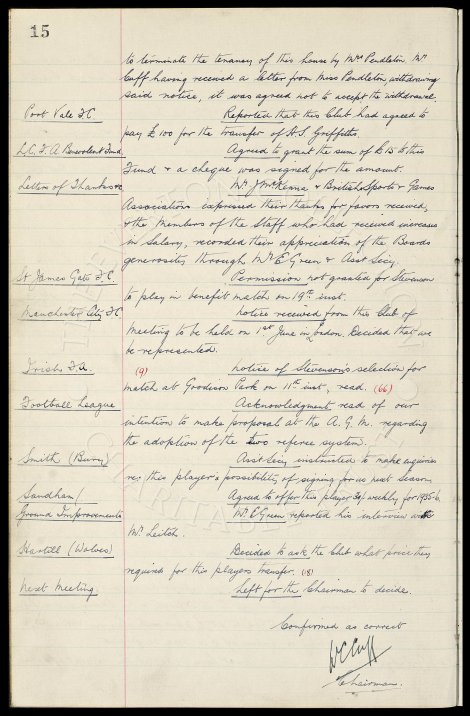 15
to terminate the tenancy of this house by Mrs Pendleton. Mr
Cuff having received a letter from Miss Pendleton, withdrawing
said notice, it was agreed not to accept the withdrawal.
Port Vale F.C. Reported that this Club had agreed to
pay £100 for the transfer of H.S. Griffiths.
L.C.F.A. Benevolent Fund Agreed to grant the sum of £15 to this
Fund & a cheque was signed for the amount.
Letters of Thanks &c Mr J McKenna & British Sports & Games
Association expressed their thanks for favors received,
& the Members of the Staff who had received increases
in Salary, recorded their appreciation of the Boards
generosity through Mr E Green & Asst Secy.
St James Gate F.C. Permission not granted for Stevenson
to play in benefit match on 19th inst.
Manchester City F.C notice received from this Club of
Meeting to be held on 1st June in London. Decided that we
be represented.
Irish F.A. (9) notice of Stevenson's selection for
match at Goodison Park on 11th inst, read. (66)
Football League Acknowledgment read of our
intention to make proposal at the A.G.M. regarding
the adoption of the two referee system.
Smith (Bury) Asst Secy instructed to make enquiries
re: this player & possibility of signing for us next season.
Sandham/ Agreed to offer this player 30/- weekly for 1935-6.
Ground Improvements Mr E Green reported his interview with
Mr Leitch.
Hartill (Wolves) Decided to ask the Club what price they
required for this players transfer. (18)
Next Meeting Left for the Chairman to decide.
Confirmed as correct
WC Cuff
Chairman.